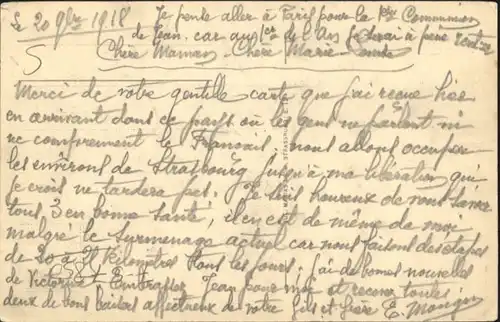 Le 20 9bre 1918
Je pense aller à Paris pour la 1ère Communion
de Jean, car au 1er de l'an je serai à peine rentré
Chère Maman - Chère Marie-
Merci de votre gentille carte que j'ai reçue hier
en arrivant dans ce pays où les gens ne parlent ni
ne comprennent le Français. nous allons occuper
les environs de Strasbourg jusqu'à ma libération qui
je crois ne tardera pas. Je suis heureux de vous savoir
tous 3 en bonne santé, il en est de même de moi
malgré le surmenage actuel car nous faisons des étapes
de 20 à kilomètres tous les jours. j'ai de bonnes nouvelles
de Victorine. Embrassez Jean pour moi et recevez toutes
deux de bons baisers affectueux de votre fils et frère E.